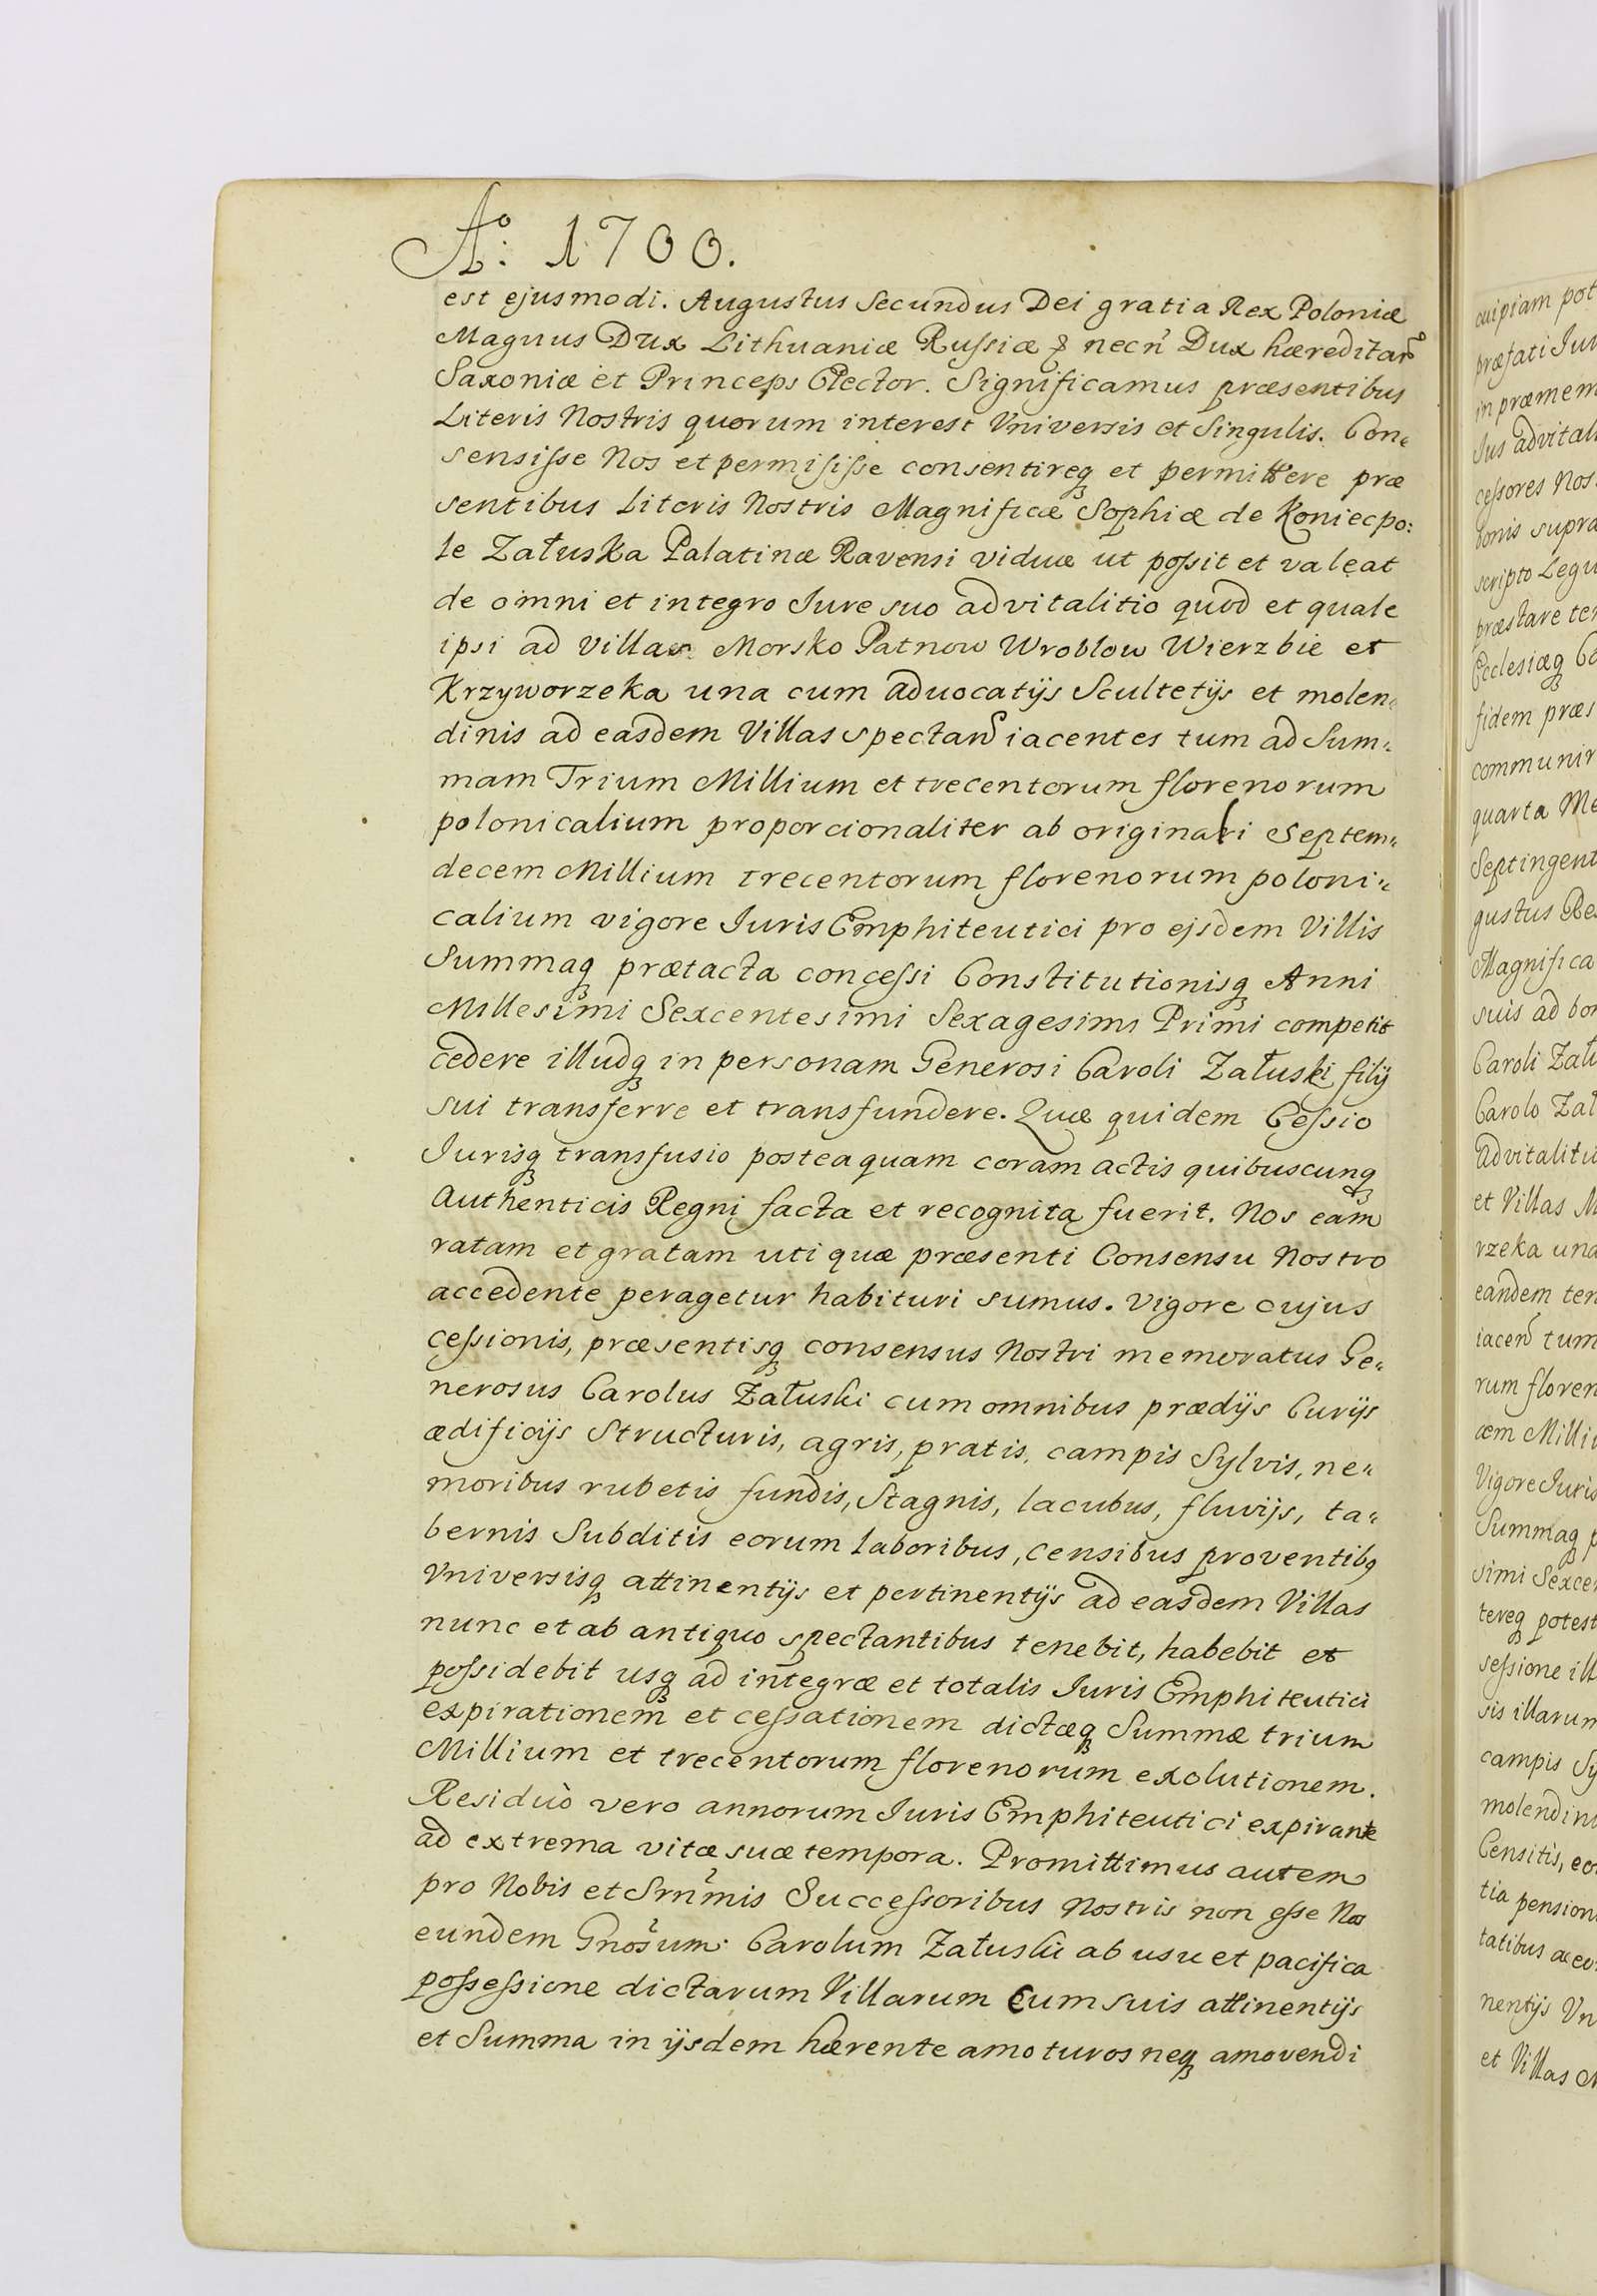 Aº: 1700.
est ejusmodi. Augustus Secundus Dei gratia Rex Poloniæ
Magnus Dux Lithuaniæ Russiæ & necñ Dux hæreditar̃
Saxoniæ et Princeps Elector. Significamus præsentibus
Literis Nostris quorum interest Vniversis et Singulis. Con„
sensisse Nos et permisisse consentireq et permittere præ
sentibus Literis Nostris Magnificæ Sophiæ de Koniecpo:
le Załuska Palatinæ Ravensi viduæ ut possit et valeat
de omni et integro Jure suo advitalitio quod et quale
ipsi ad Villas Morsko Patnow Wroblow Wierzbie et
Krzyworzeka una cum aduocatijs Scultetijs et molen„
dinis ad easdem Villas spectan̄ iacentes tum ad Sum„
mam Trium Millium et trecentorum florenorum
polonicalium proporcionaliter ab originali Septem„
decem Millium trecentorum florenorum poloni„
calium vigore Juris Emphiteutici pro ejsdem Villis
Summaq prætacta concessi Constitutionisq Anni
Millesimi Sexcentesimi Sexagesimi Primi competit
cedere illudq in personam Generosi Caroli Załuski filij
sui transferre et transfundere. Quæ quidem Cessio
Jurisq transfusio posteaquam coram actis quibuscunq
Authenticis Regni facta et recognita fuerit. Nos eam
ratam et gratam uti quæ præsenti Consensu Nostro
accedente peragetur habituri sumus. Vigore cujus
cessionis, præsentisq consensus Nostri memoratus Ge„
nerosus Carolus Załuski cum omnibus prædijs Curijs
ædificijs Structuris, agris, pratis, campis Sylvis, ne„
moribus rubetis fundis, Stagnis, lacubus, fluvijs, ta„
bernis Subditis eorum laboribus, censibus proventibq
Vniversisq attinentijs et pertinentijs ad easdem Villas
nunc et ab antiquo spectantibus tenebit, habebit et
possidebit usq ad integræ et totalis Juris Emphiteutici
expirationem et cessationem dictæq Summæ trium
Millium et trecentorum florenorum exolutionem.
Residuò vero annorum Juris Emphiteutici expirante
ad extrema vitæ suæ tempora. Promittimus autem
pro Nobis et Srñmis Successoribus Nostris non esse Nos
eundem Gnõsum. Carolum Załuski ab usu et pacifica
possessione dictarum Villarum Cum suis attinentijs
et Summa in ijsdem hærente amoturos neq amovendi
cuipiam pot
præfati Jur
in præmem
Jus advitali
cessores Nos
bonis supra
scripto Legu
præstare ten
Ecclesiæq Ca
fidem præs
communir
quarta Me
Septingent
gustus Re
Magnifica
suis ad bon
Caroli Zału
Carolo Zał
advitaliti
et Villas M
rzeka una
eandem ten
iacen̄ tum
rum floren
cem Milli
Vigore Juris
Summaq p
simi Sexce
tereq potest
sessione ill
sis illarum
campis Sy
molendin
Censitis, eo
tia pension
tatibus ac eo
nentijs Vn
et Villas M